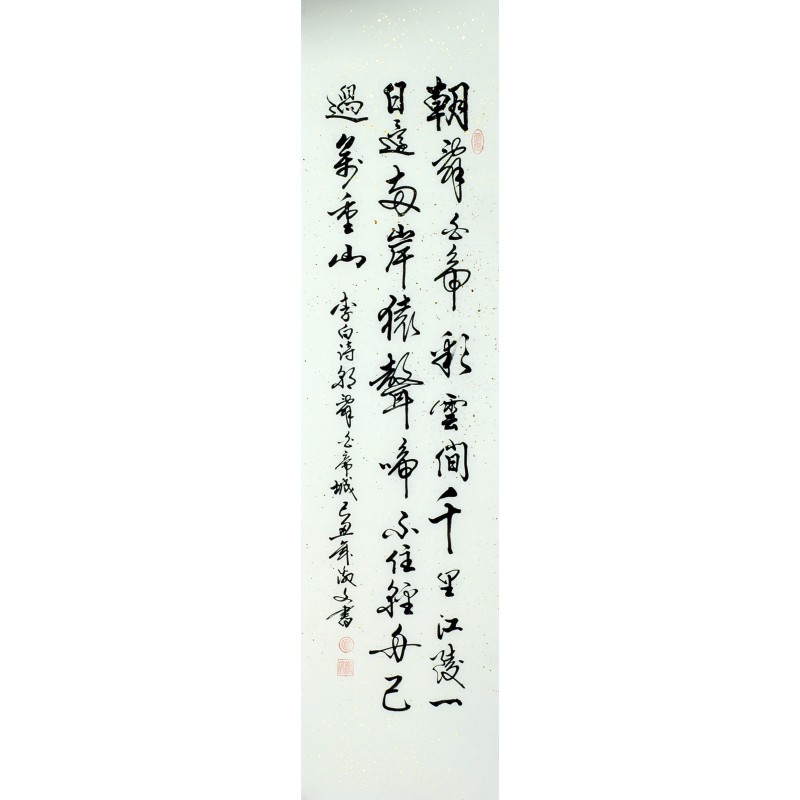 朝辞白帝彩雲間千里江陵一
日還兩岸猿聲啼不住輕舟已
過萬重山
李白诗朝辞白帝城己丑年淑文書